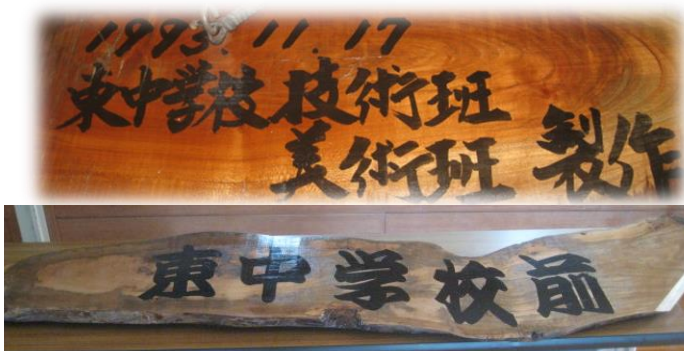 1993.11.17
東中学校 技術班
美術班 製作
東中学校前